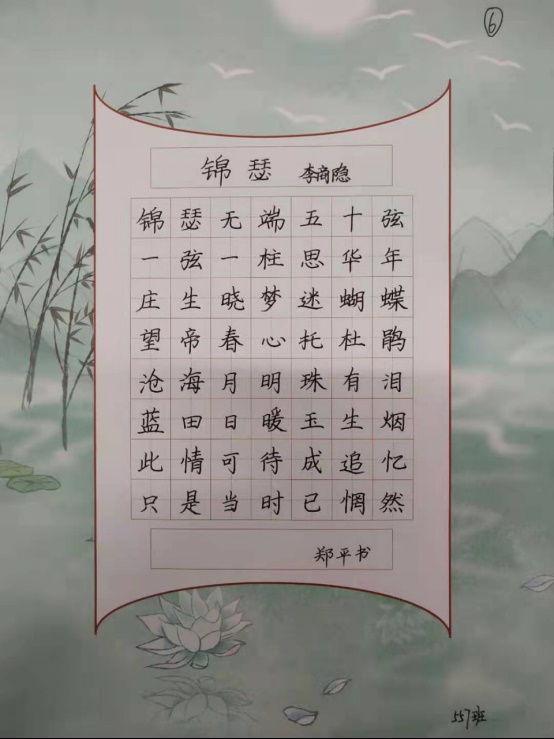 ⑥
锦瑟 李商隐
锦瑟无端五十弦
一弦一柱思华年
庄生晓梦迷蝴蝶
望帝春心托杜鹃
沧海月明珠有泪
蓝田日暖玉生烟
此情可待成追忆
只是当时已惘然
郑平书
557班